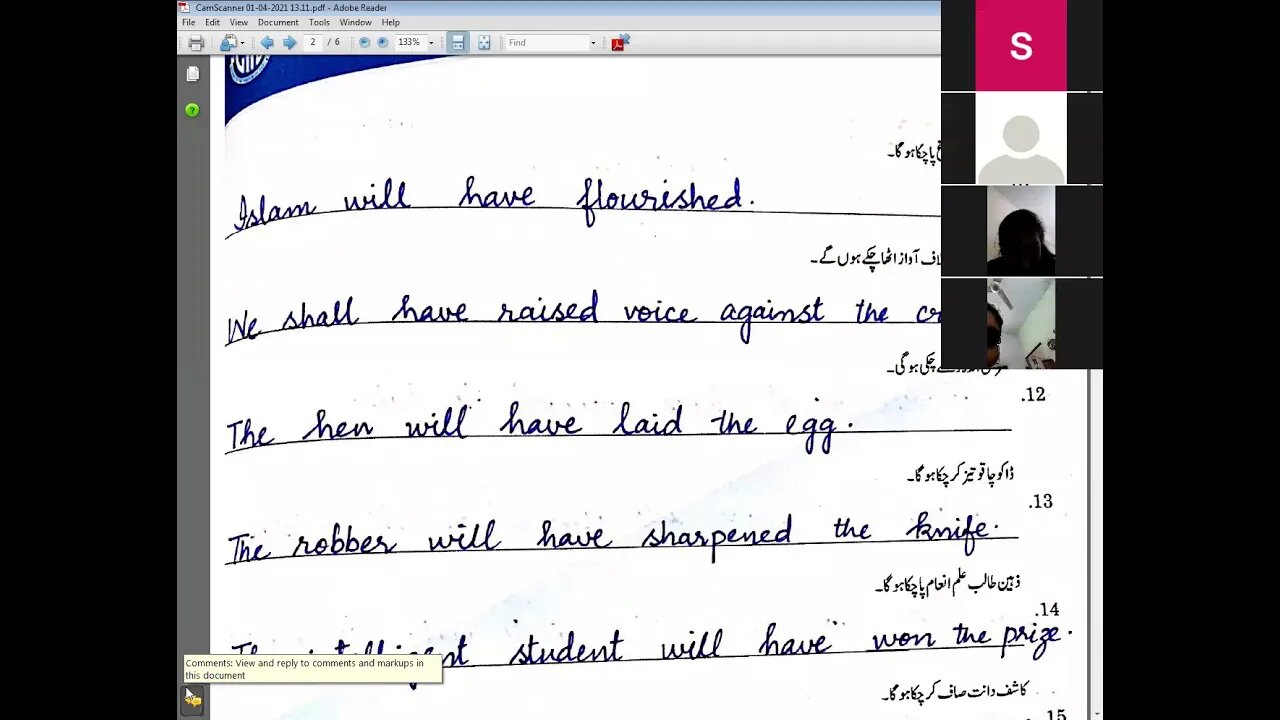 CamScanner 01-04-2021 13.11.pdf - Adobe Reader
File Edit View Document Tools Window Help
2 / 6 133% Find
S
پا چکا ہو گا۔
Islam will have flourished.
آواز اٹھا چکے ہوں گے۔
We shall have raised voice against the
چکی ہو گی۔
.12
The hen will have laid the egg.
ڈاکو چاقو تیز کر چکا ہو گا۔
.13
The robber will have sharpened the knife.
ذہین طالب علم انعام پا چکا ہو گا۔
.14
student will have won the prize.
Comments: View and reply to comments and markups in
this document
کاشف دانت صاف کر چکا ہو گا۔
.15